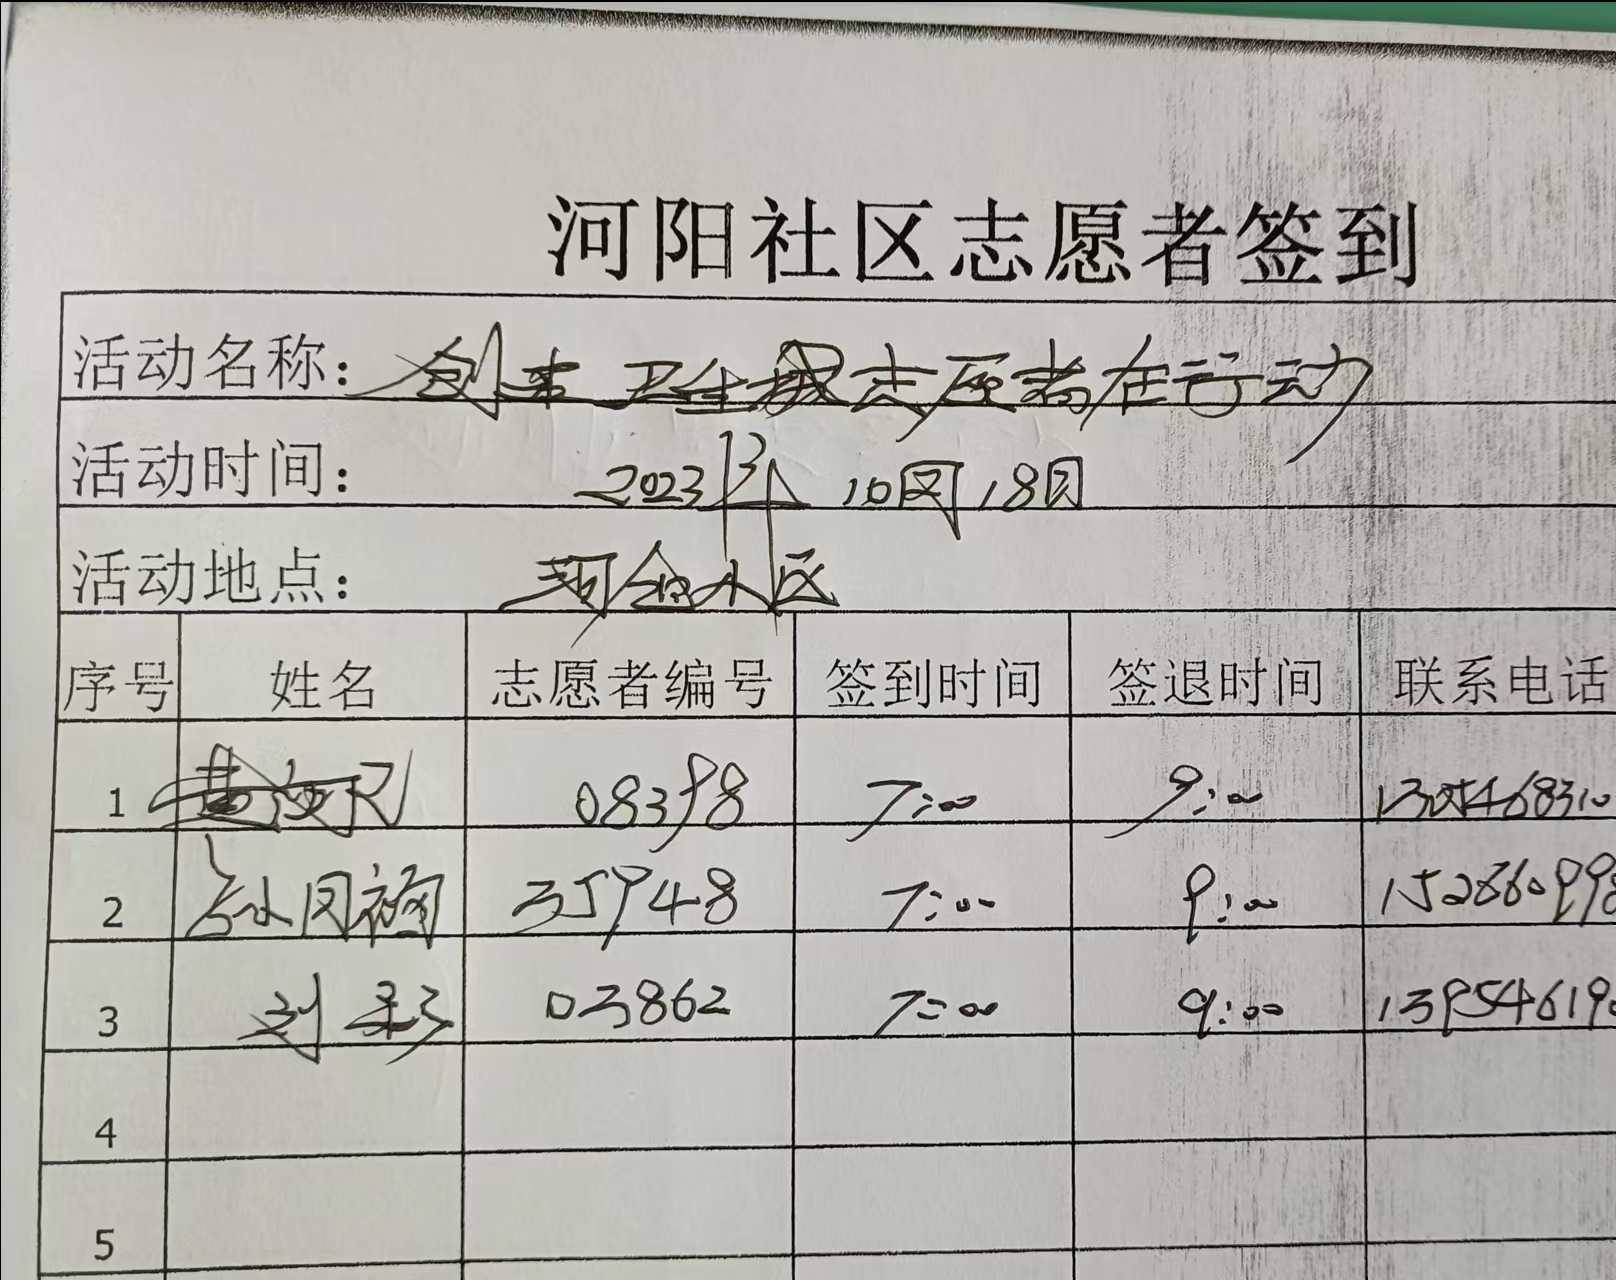 河阳社区志愿者签到
活动名称：创卫生城志愿者在行动
活动时间：2023年10月18日
活动地点：小区
序号 姓名 志愿者编号 签到时间 签退时间 联系电话
1 08398 7:00 9:00
2 孙风 35948 7:00 9:00
3 刘彩 03862 7:00 9:00 139546190
4
5